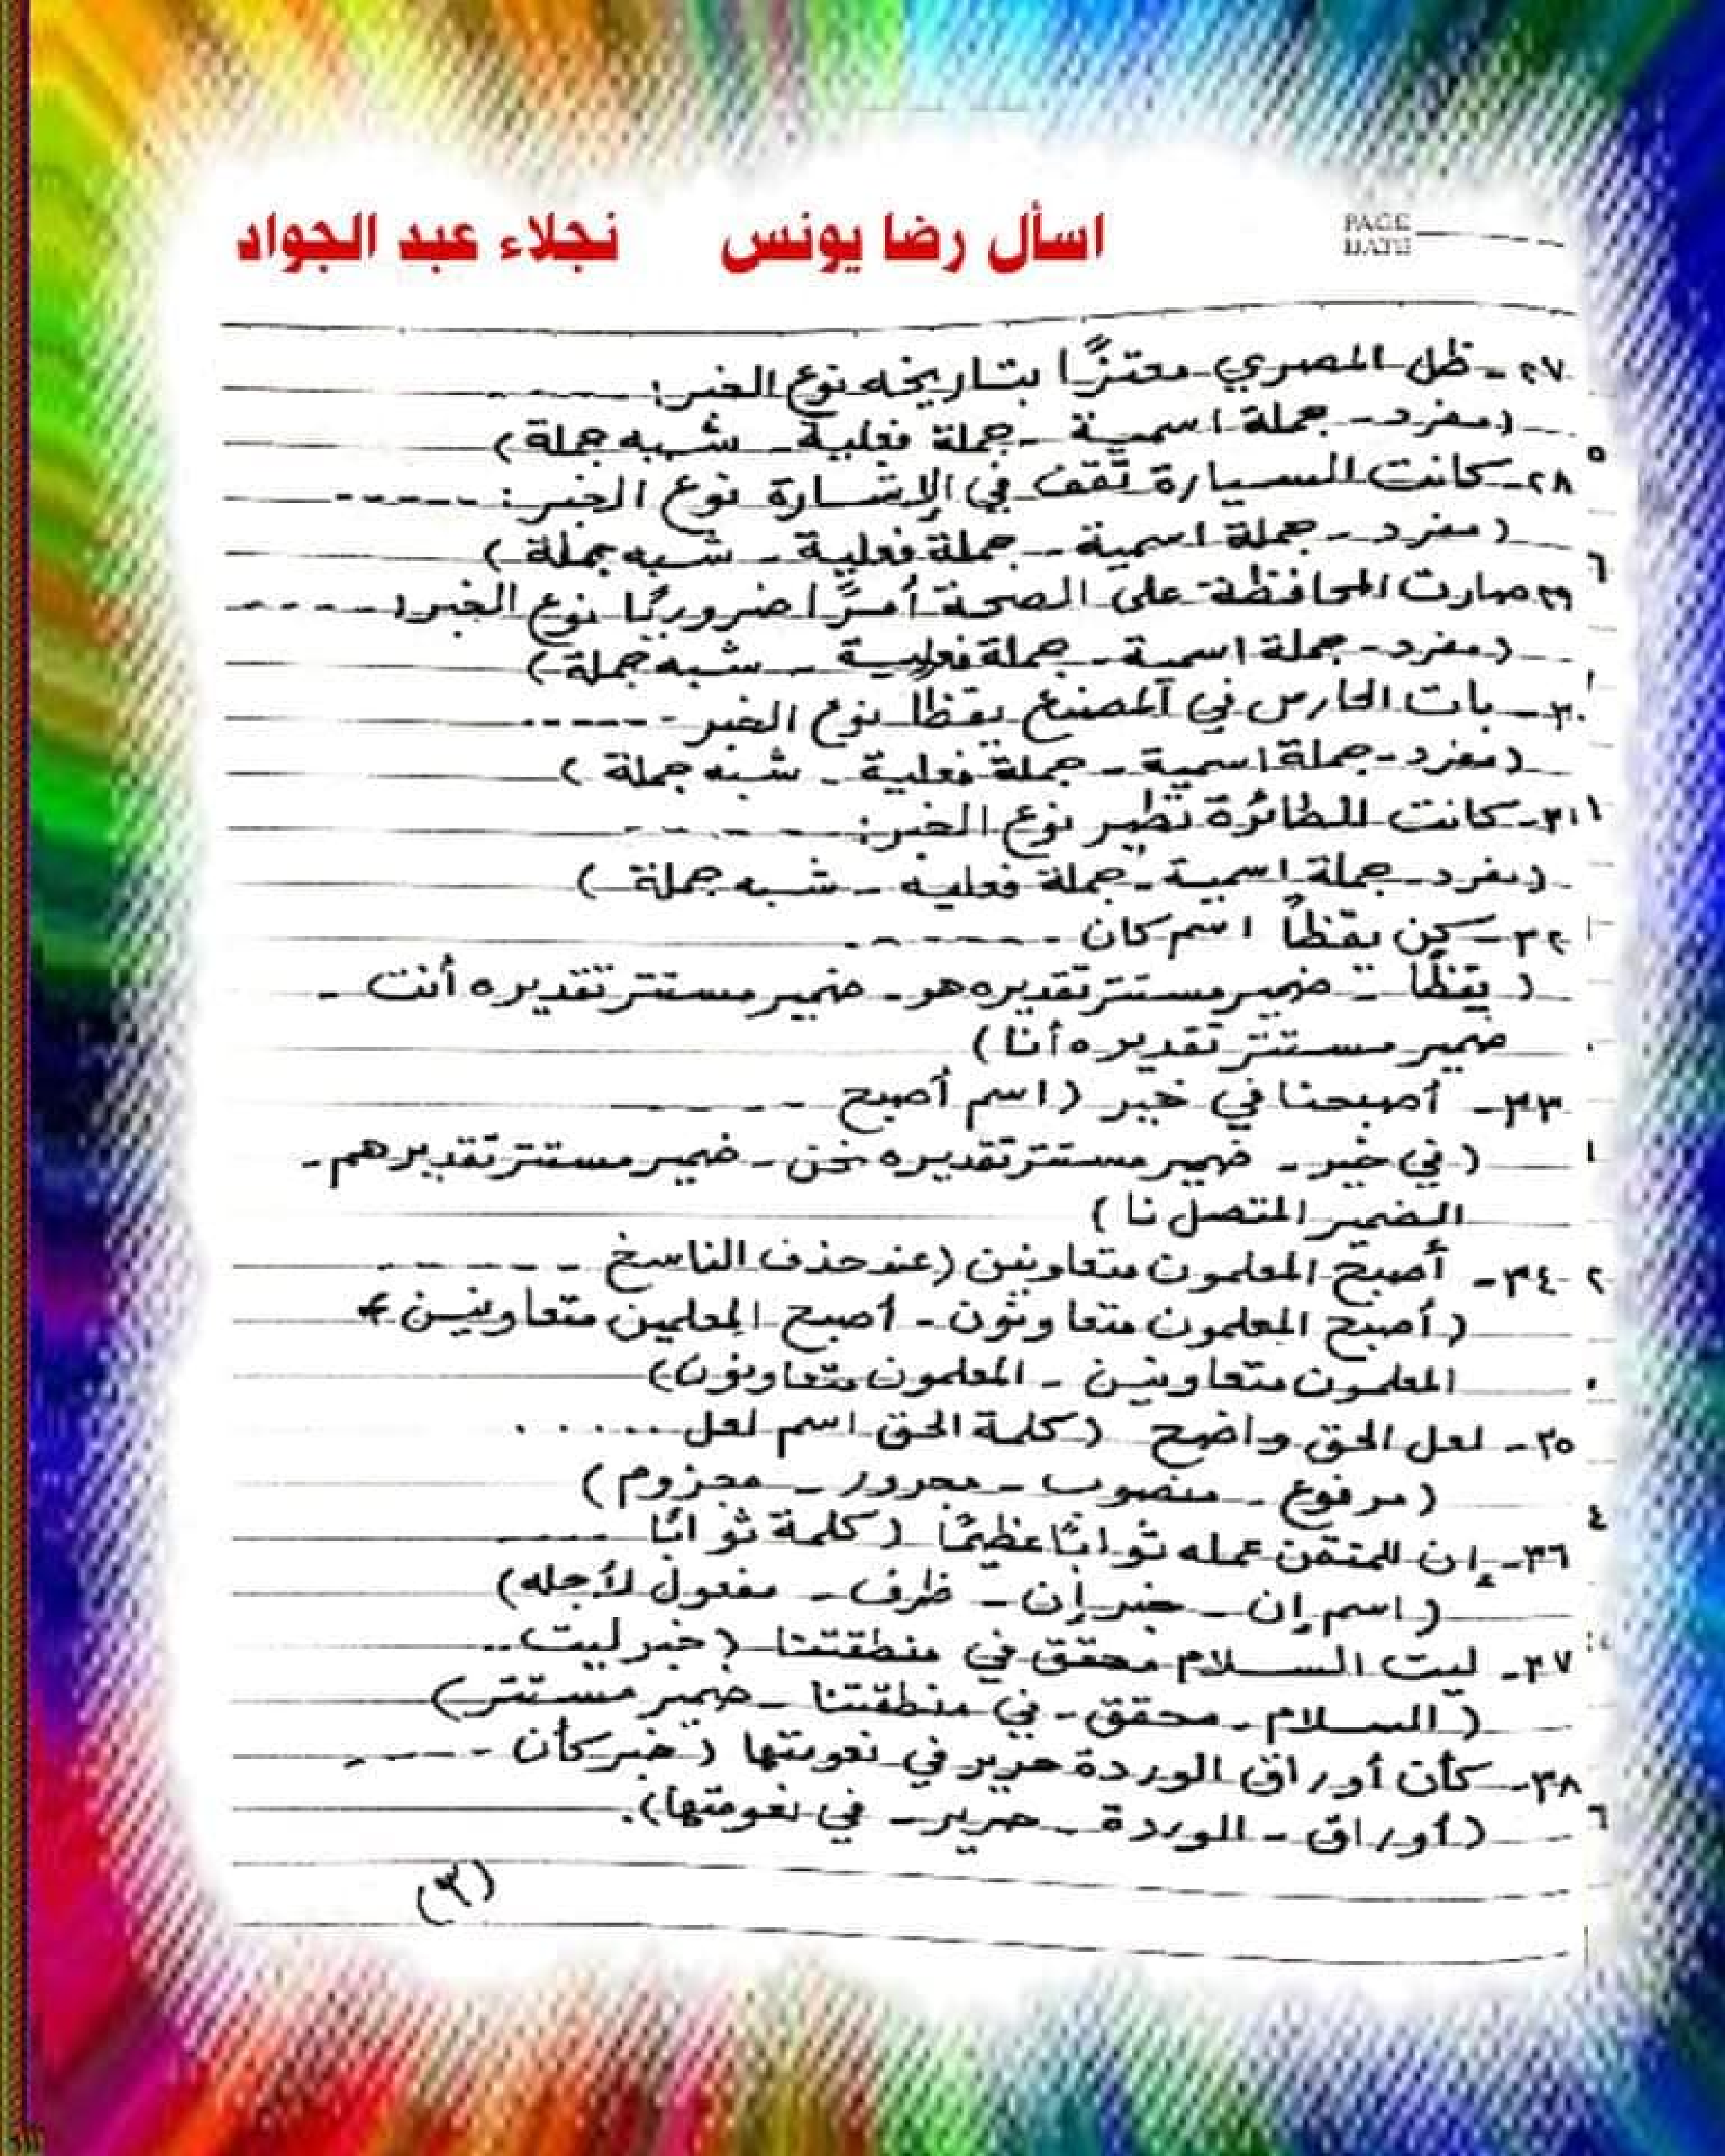 اسأل رضا يونس نجلاء عبد الجواد
PAGE
DATE
٢٧- ظل المصري معتزًّا بتاريخه نوع الخبر: -----
(مفرد - جملة اسمية - جملة فعلية - شبه جملة)
٢٨- كانت السيارة تقف في الإشارة نوع الخبر: -----
(مفرد - جملة اسمية - جملة فعلية - شبه جملة)
٢٩ صارت المحافظة على الصحة أمرًا ضروريًا نوع الخبر: -----
(مفرد - جملة اسمية - جملة فعلية - شبه جملة)
٣٠- بات الحارس في المصنع يقظًا نوع الخبر -----
(مفرد - جملة اسمية - جملة فعلية - شبه جملة)
٣١- كانت الطائرة تطير نوع الخبر: -----
(مفرد - جملة اسمية - جملة فعلية - شبه جملة)
٣٢- كن يقظًا اسم كان -----
(يقظًا - ضمير مستتر تقديره هو - ضمير مستتر تقديره أنت -
ضمير مستتر تقديره أنا)
٣٣- أصبحنا في خير (اسم أصبح -----
(في خير - ضمير مستتر تقديره نحن - ضمير مستتر تقديرهم -
الضمير المتصل نا)
٣٤- أصبح المعلمون متعاونين (عند حذف الناسخ -----
(أصبح المعلمون متعاونون - أصبح المعلمين متعاونين -
المعلمون متعاونين - المعلمون متعاونون)
٣٥- لعل الحق واضح (كلمة الحق اسم لعل .....
(مرفوع - منصوب - مجرور - مجزوم)
٣٦- إن للمتقن عمله ثوابًا عظيمًا (كلمة ثوابًا ----
(اسم إن - خبر إن - ظرف - مفعول لأجله)
٣٧- ليت السلام محقق في منطقتنا (خبر ليت ..
(السلام - محقق - في منطقتنا - ضمير مستتر)
٣٨- كأن أوراق الوردة حرير في نعومتها (خبر كأن -----
(أوراق - الوردة - حرير - في نعومتها).
(٣)